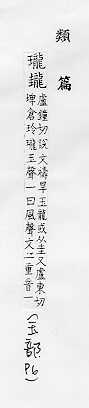 類篇
瓏
盧鐘切說文禱旱玉龍或从又盧東切
埤倉玲瓏玉聲一曰風聲文二重音一
(玉部 P6)